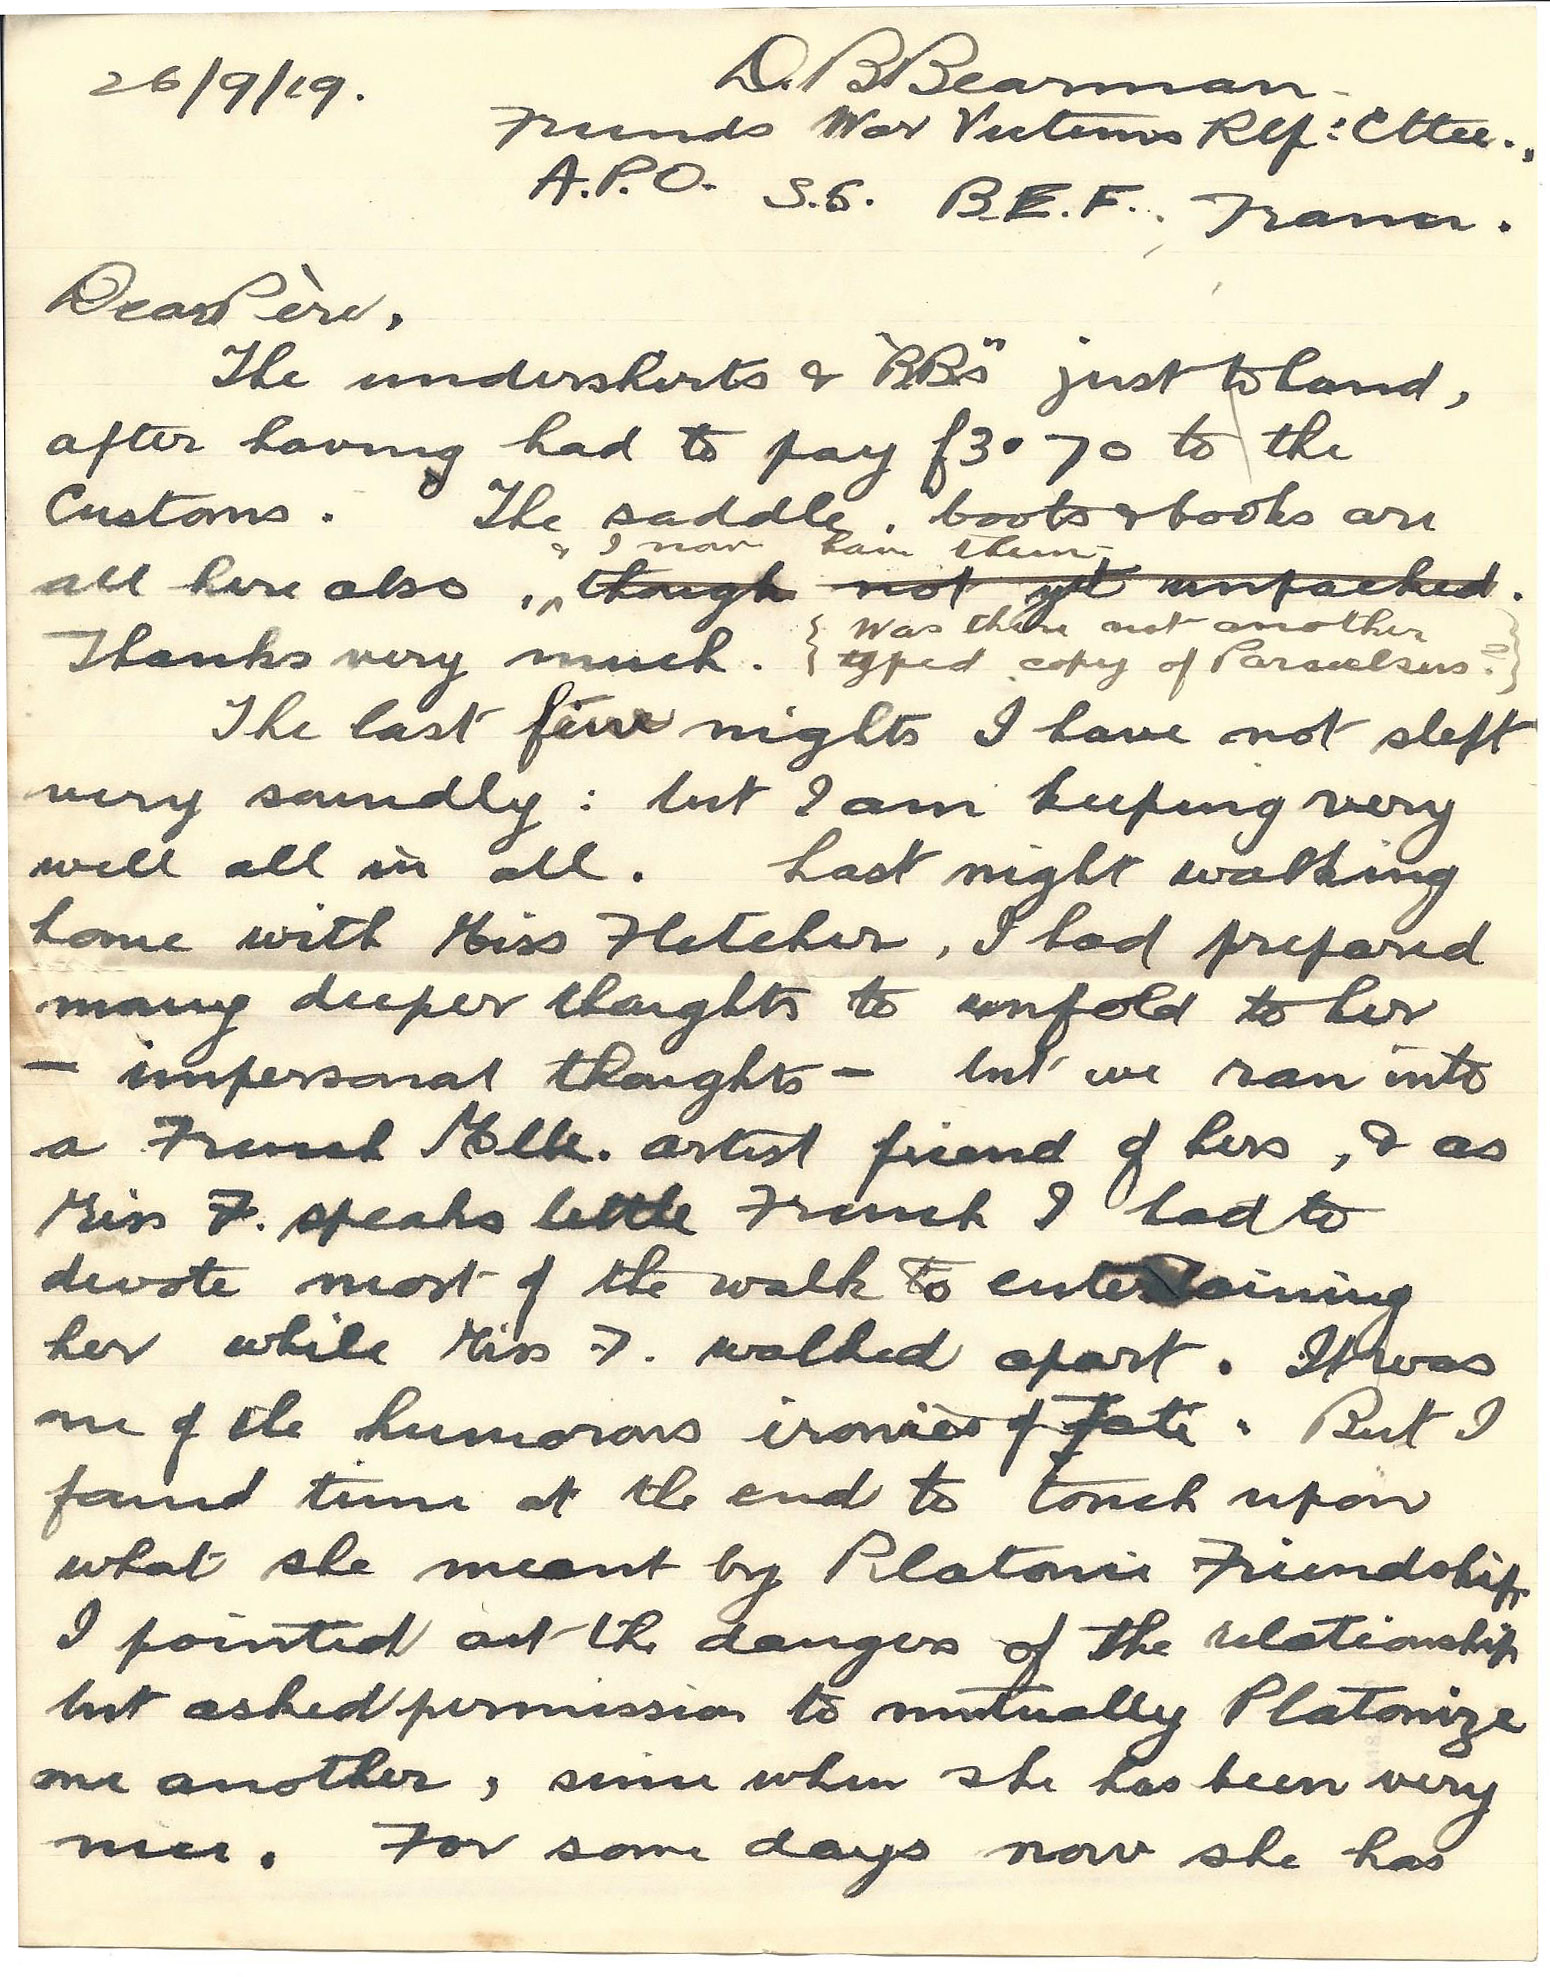 26/9/19.
D. B Bearman
Friends War Victims Rlf: Cttee.,
A.P.O. S.5. B.E.F., France.
Dear Père,
The undershirts & "BBs" just to hand,
after having had to pay f3.70 to the
Customs. The saddle, boots & books are
& I now have them
all here also, though not yet unpacked.
Thanks very much. { Was there not another
typed copy of Paracelsus? }
The last few nights I have not slept
very soundly: but I am keeping very
well all in all. Last night walking
home with Miss Fletcher, I had prepared
many deeper thoughts to unfold to her
– impersonal thoughts – but we ran into
a French Mlle. artist friend of hers, & as
Miss F. speaks little French I had to
devote most of the walk to entertaining
her while Miss F. walked apart. It was
one of the humorous ironies of Fate. But I
found time at the end to touch upon
what she meant by Platonic Friendship.
I pointed out the dangers of the relationship
but asked permission to mutually Platonize
one another, since when she has been very
nice. For some days now she has